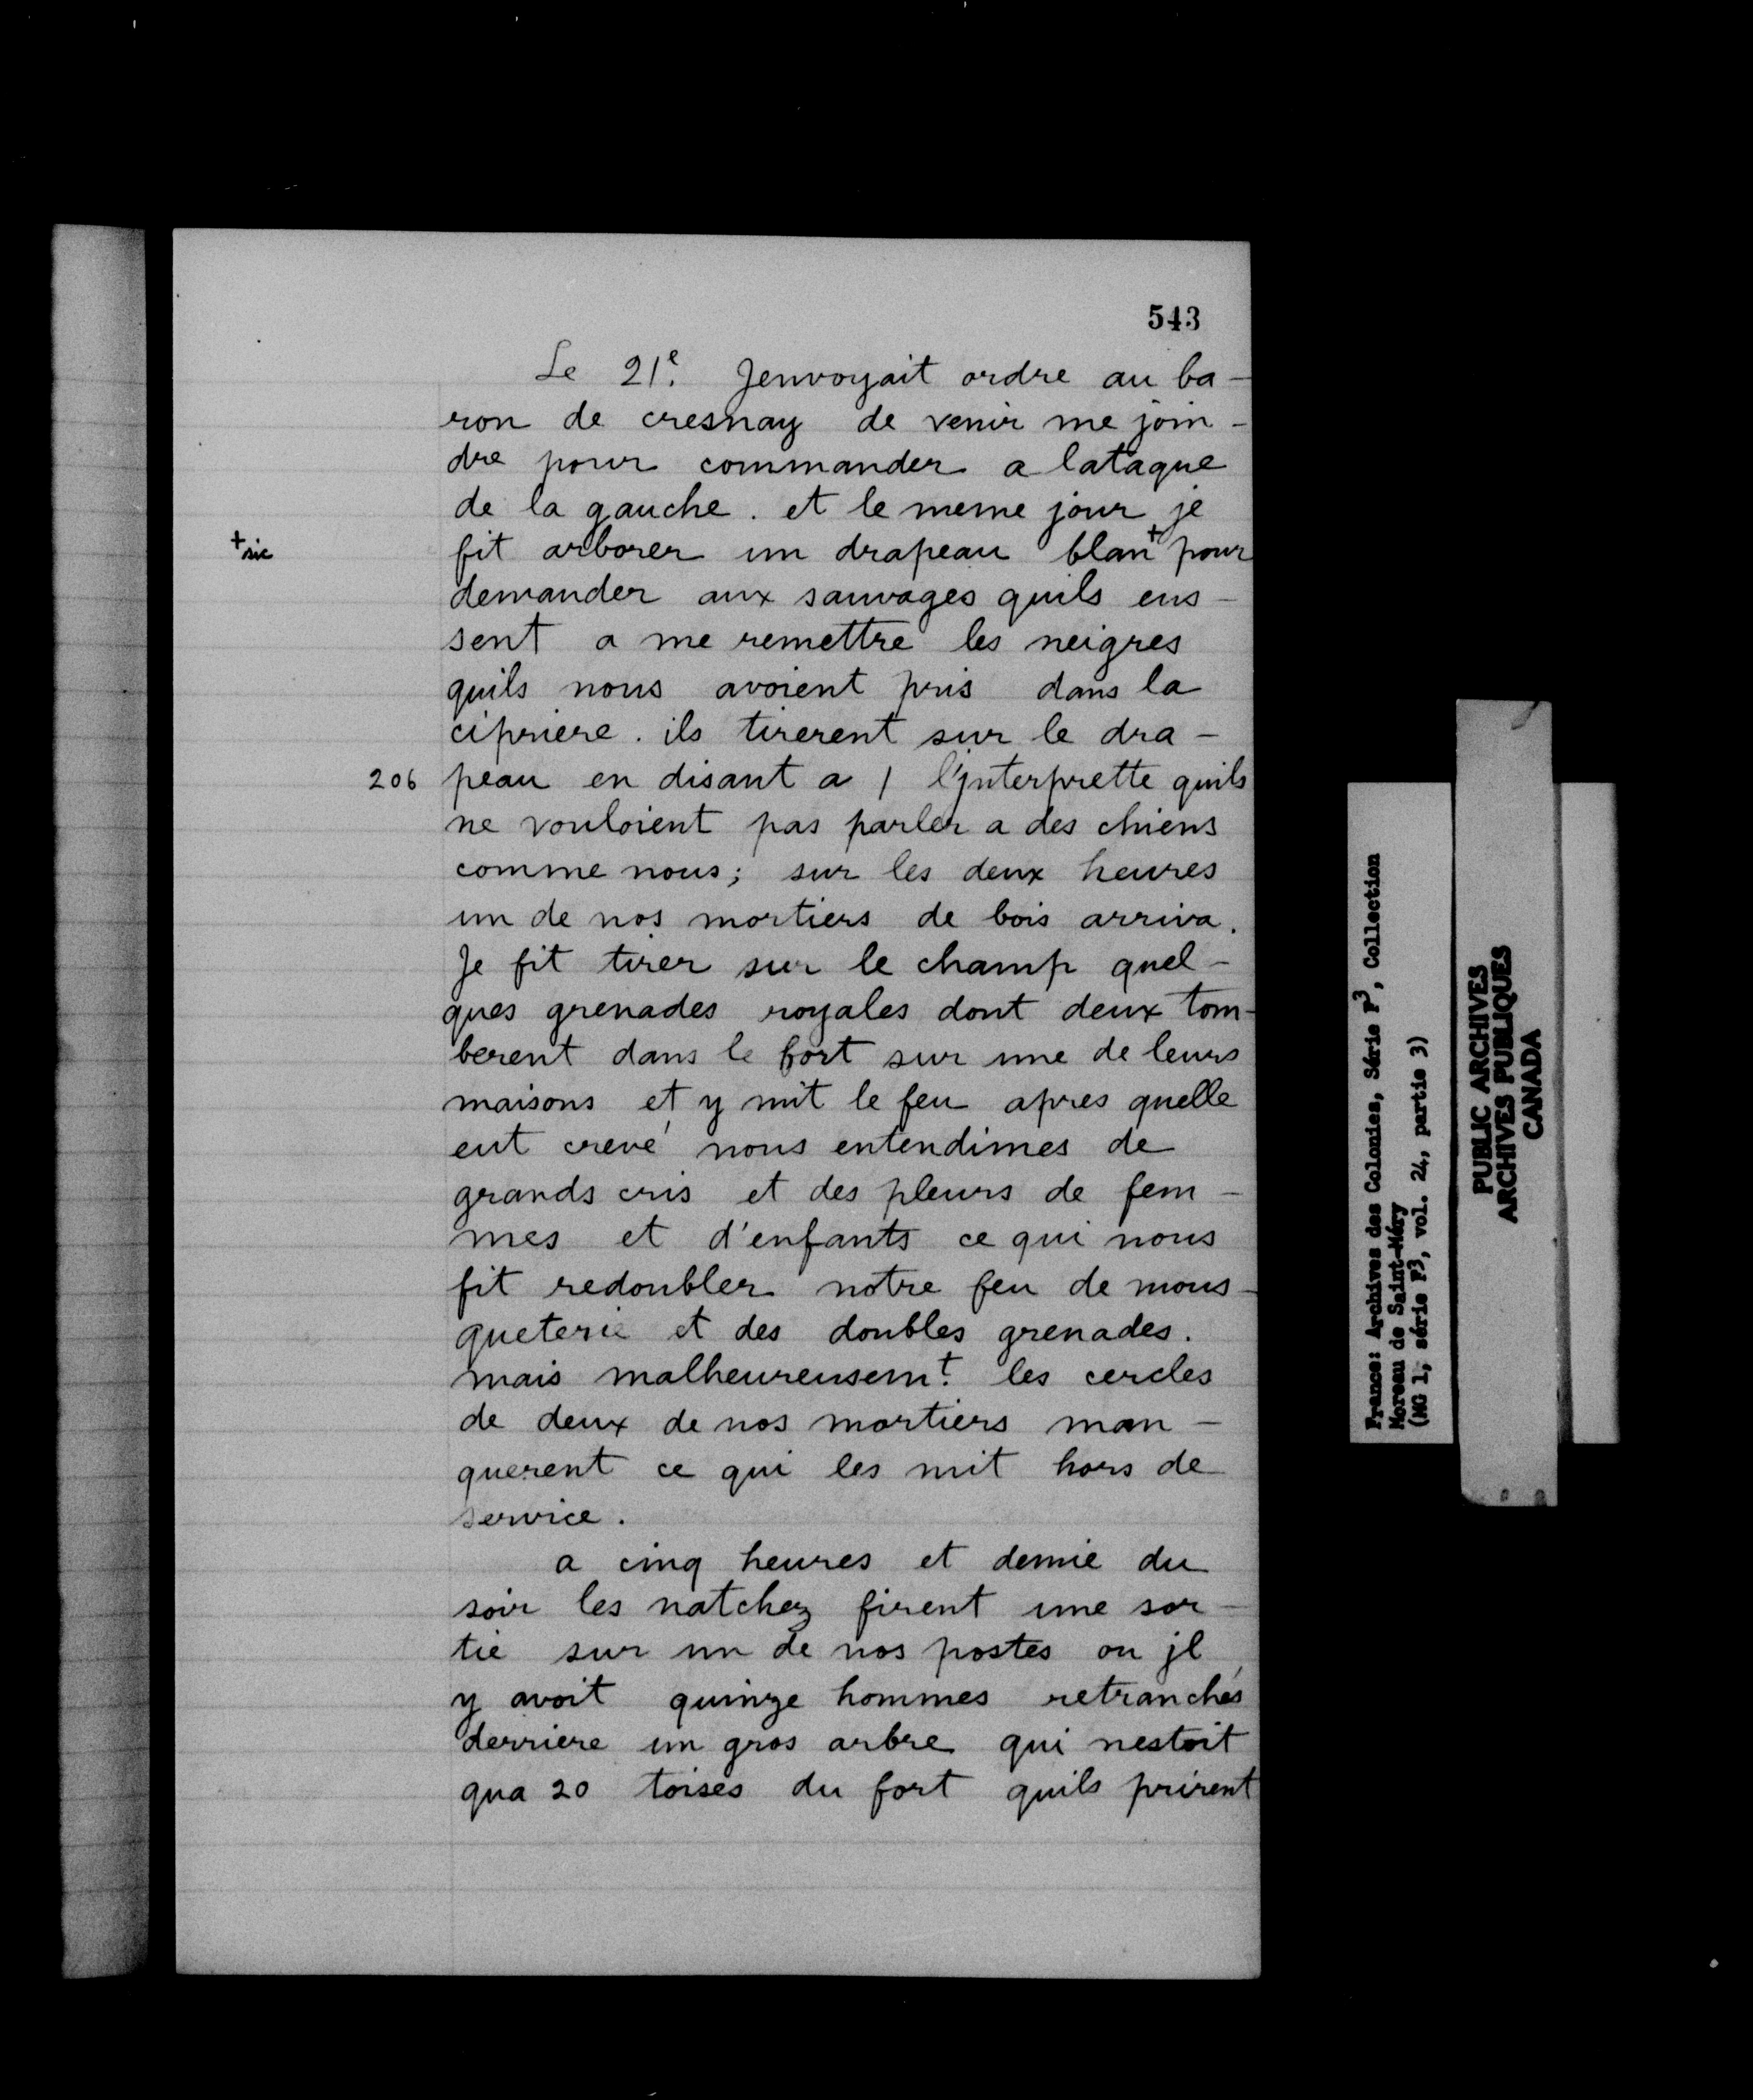 543
Le 21e. Jenvoyait ordre au ba-
ron de cresnay de venir me join-
dre pour commander a lataque
de la gauche. et le meme jour je
+sic fit arborer un drapeau blan+ pour
demander aux sauvages quils eus-
sent a me remettre les neigres
quils nous avoient pris dans la
cipriere. ils tirerent sur le dra-
206 peau en disant a / l'jnterprette quils
ne vouloient pas parler a des chiens
comme nous; sur les deux heures
un de nos mortiers de bois arriva.
Je fit tirer sur le champ quel-
ques grenades royales dont deux tom-
berent dans le fort sur une de leurs
maisons et y mit le feu apres quelle
eut crevé nous entendimes de
grands cris et des pleurs de fem-
mes et d'enfants ce qui nous
fit redoubler notre feu de mous-
queterie et des doubles grenades.
mais malheureusemt. les cercles
de deux de nos mortiers man-
querent ce qui les mit hors de
service.
a cinq heures et demie du
soir les natchez firent une sor-
tie sur un de nos postes ou jl
y avoit quinze hommes retranchés
derriere un gros arbre qui nestoit
qua 20 toises du fort quils prirent
France: Archives des Colonies, Série F3, Collection
Moreau de Saint-Méry
(MG 1, série F3, vol. 24, partie 3)
PUBLIC ARCHIVES
ARCHIVES PUBLIQUES
CANADA